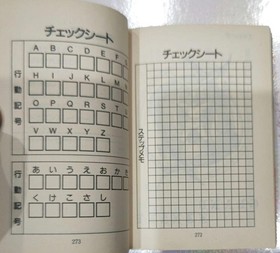 チェックシート
行動記号
A B C D E F
H I J K L M
O P Q R S T
V W X Y Z
行動記号
あ い う え お か
く け こ さ し
273
チェックシート